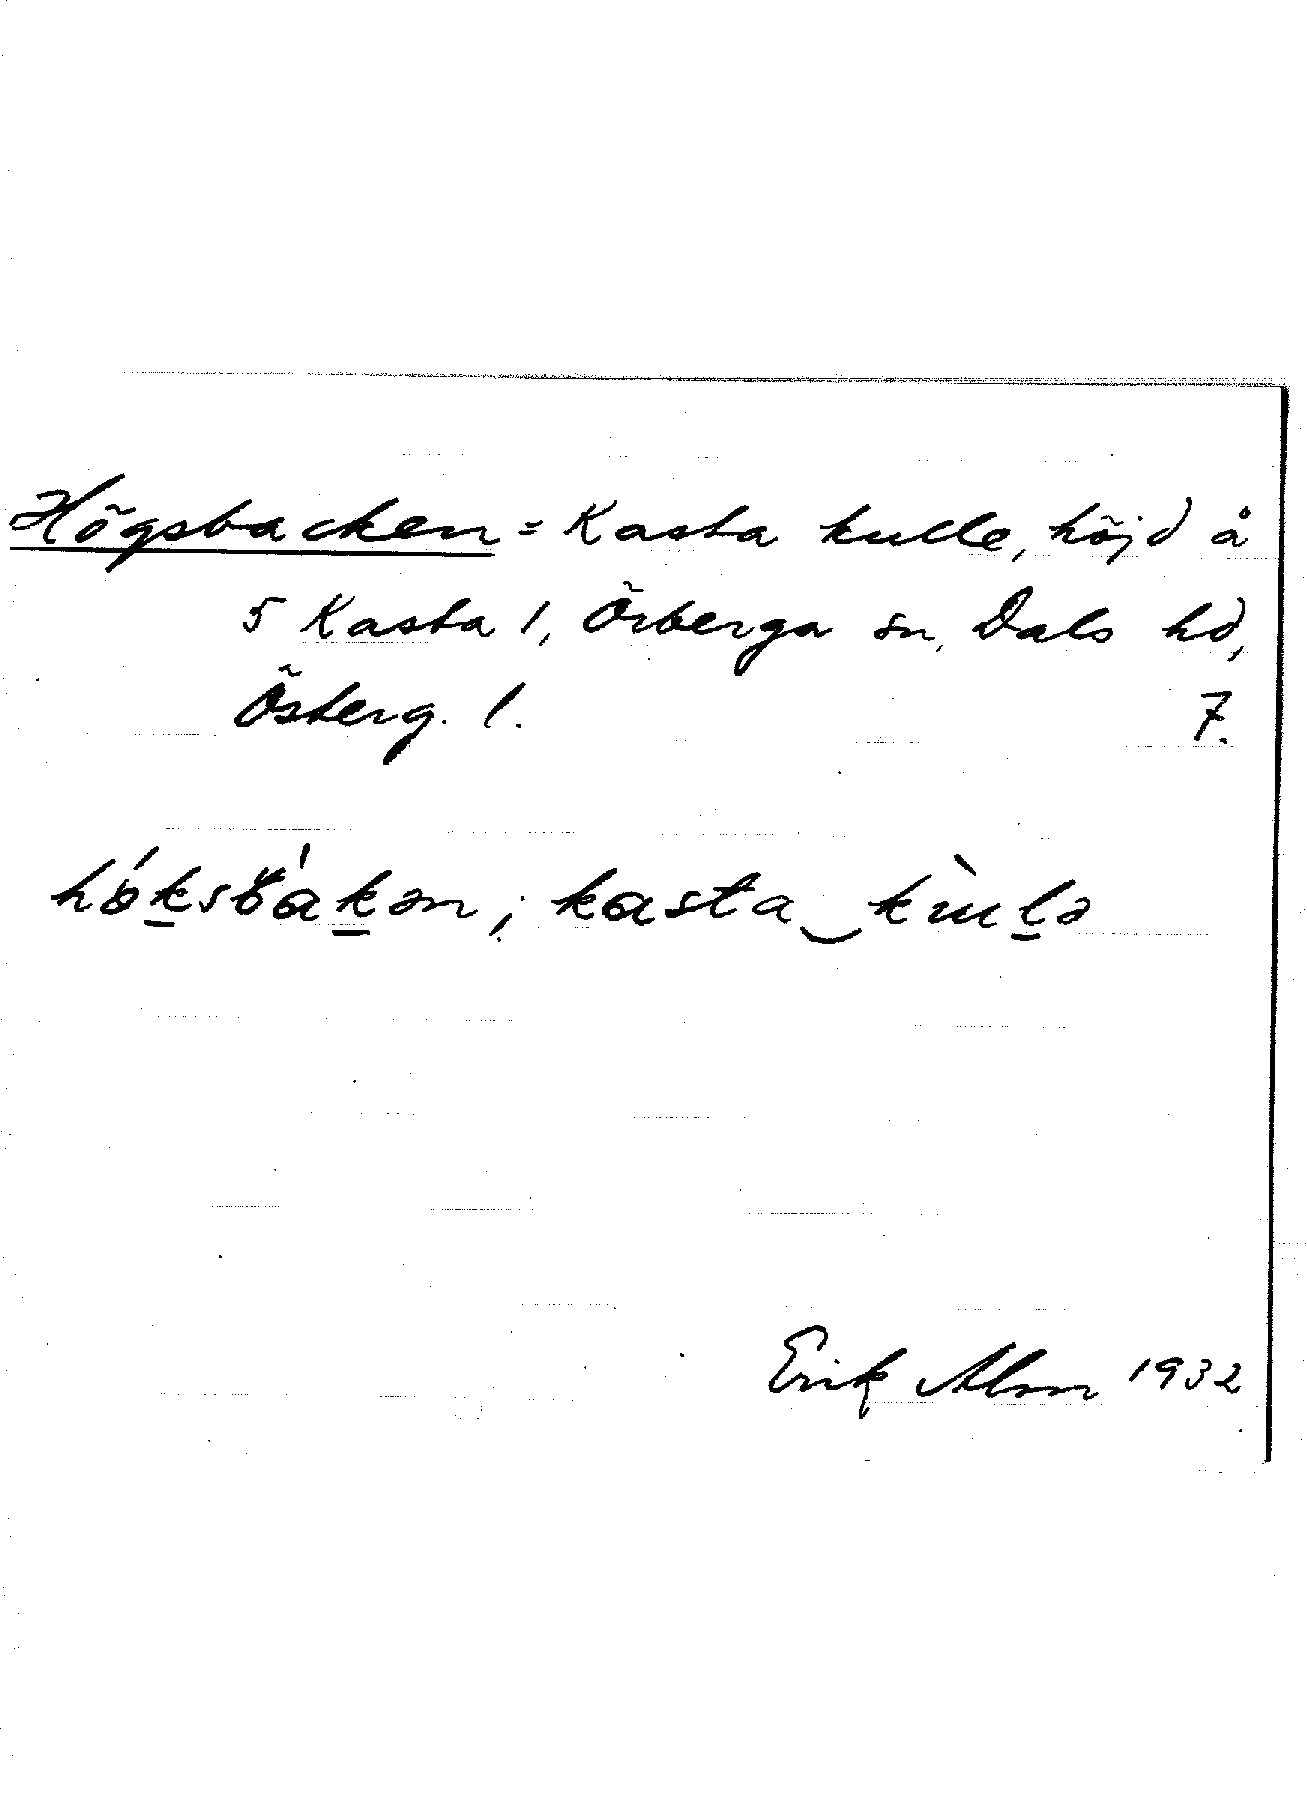 Högsbacken = Kasta kulle, höjd å
5 Kasta 1, Örberga sn, Dals hd,
Österg. l. 7.
hö́ksbákən; kasta‿kùlə
Erik Alm 1932